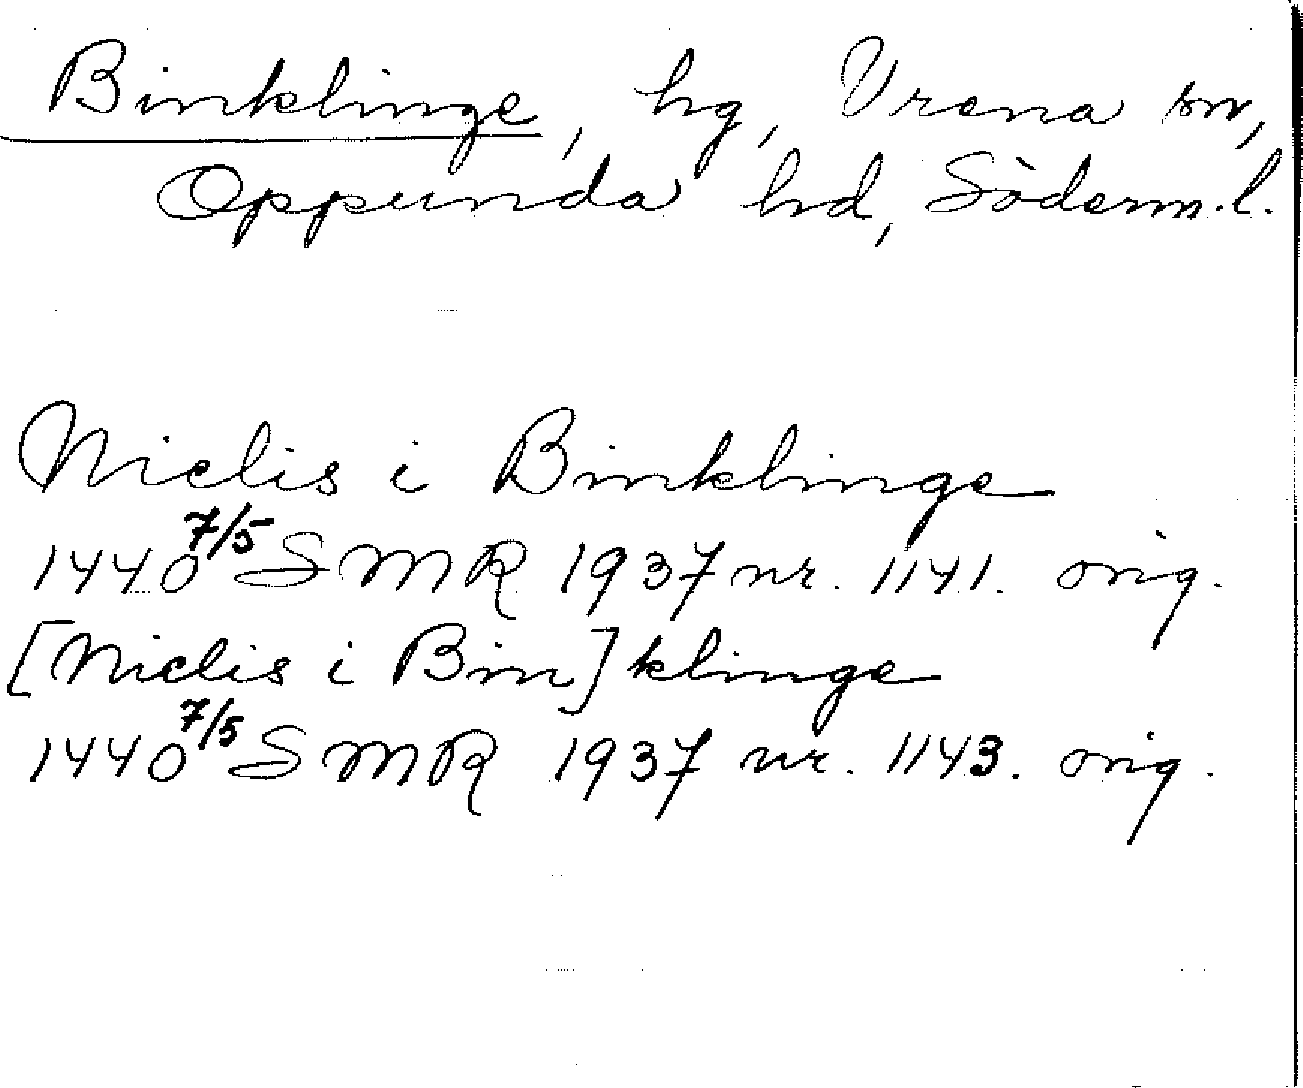 Binklinge, hg, Vrena sn,
Oppunda hd, Söderm.l.
Nielis i Binklinge
1440 7/5 SMR 1937 nr. 1141. orig.
[Nielis i Bin]klinge
1440 7/5 SMR 1937 nr. 1143. orig.